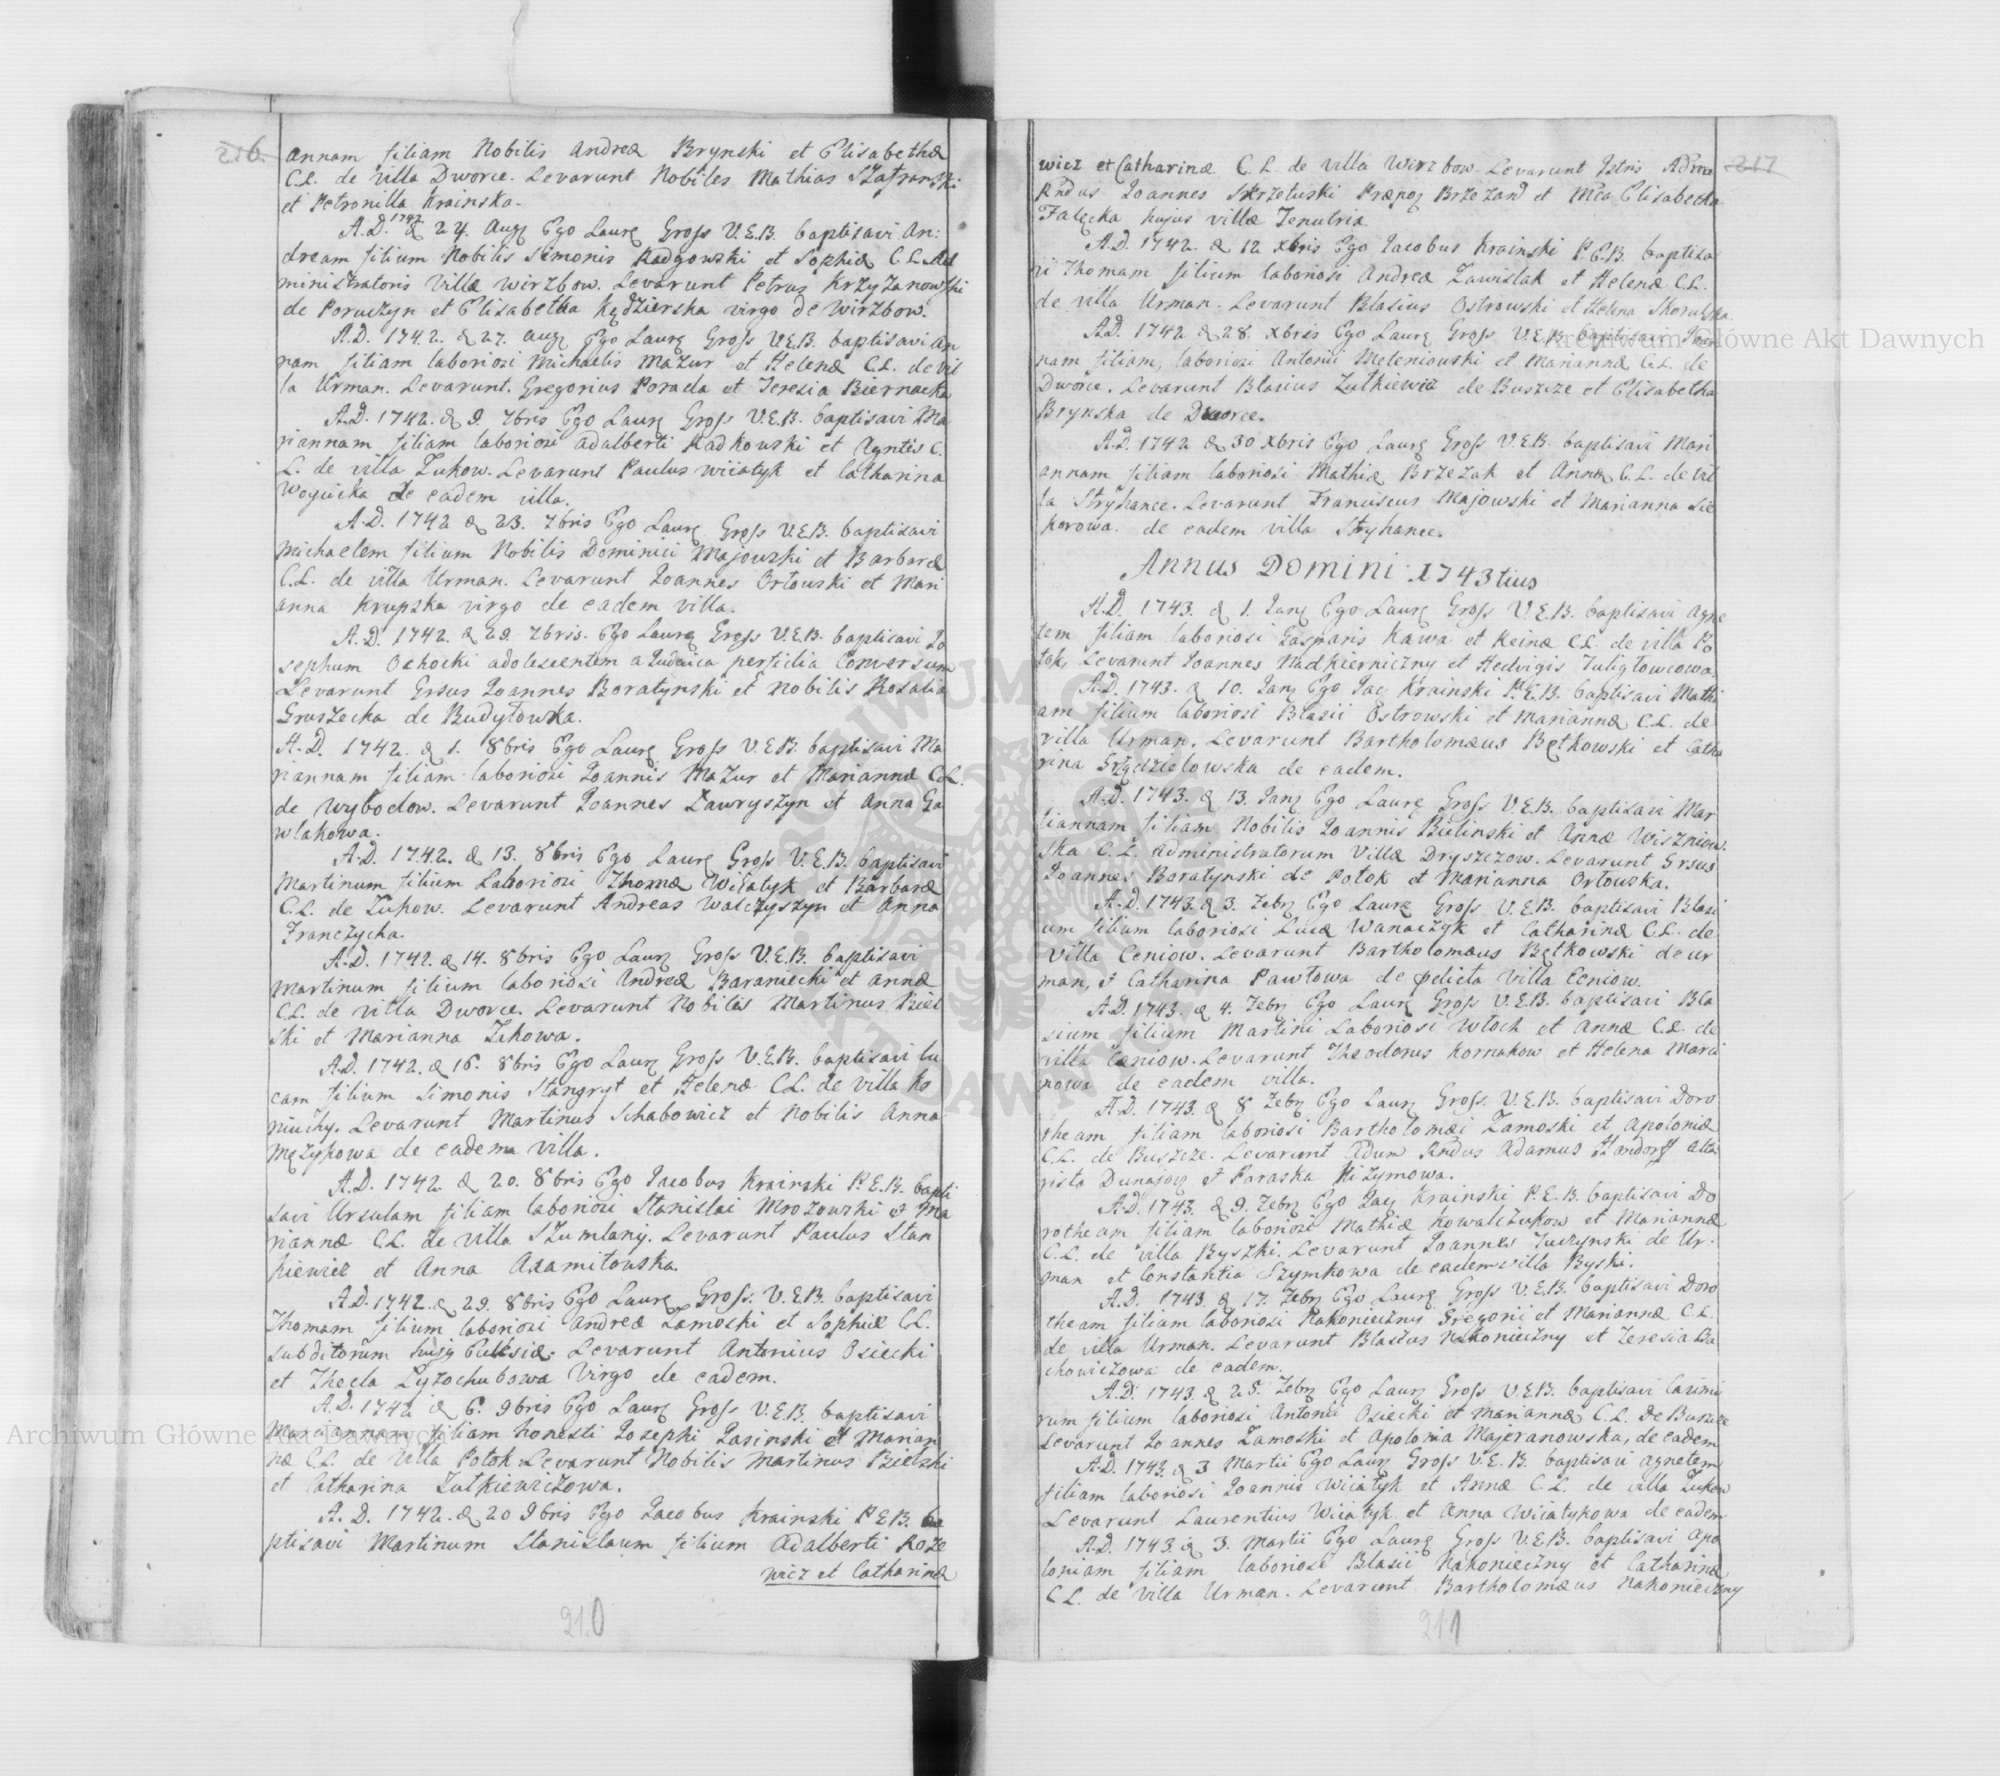 216.
annam filiam Nobilis Andreæ Brynski et Elisabethæ
C.L. de villa Dworce. Levarunt Nobiles Mathias Szafranski
et Petronilla Krainska.
A.D. 1742 d 24. Aug Ego Laur Gross V.E.B. baptisavi An:
dream filium Nobilis Simonis Radgowski et Sophiæ C.L. Ad
ministratoris Villæ Wirzbow. Levarunt Petrus Krzyzanowski
de Poruczyn et Elisabetha Kędzierska virgo de Wirzbow.
A.D. 1742. d 27. Aug Ego Laur Gross V.E.B. baptisavi An
nam filiam laboriosi Michaelis Mazur et Helenæ C.L. de vil
la Urman. Levarunt. Gregorius Porada et Teresia Biernacka
A.D. 1742. d 9. 7bris Ego Laur Gross V.E.B. baptisavi Ma
riannam filiam laboriosi Adalberti Radkowski et Agnetis C.
L. de villa Zukow. Levarunt Paulus Wiiatyk et Catharina
Woyücka de eadem villa.
A.D. 1742 d 23. 7bris Ego Laur Gross V.E.B. baptisavi
Michaelem filium Nobilis Dominici Majowski et Barbaræ
C.L. de villa Urman. Levarunt Joannes Orłowski et Mari
anna Krupska virgo de eadem villa.
A.D. 1742. d 29. 7bris. Ego Laur Gross V.E.B. baptisavi Jo
sephum Ochocki adolescentem a Judaica perfidia Conversum
Levarunt Grsus Joannes Boratynski et Nobilis Rosalia
Gruszecka de Budyłowka.
A.D. 1742. d 1. 8bris Ego Laur Gross V.E.B. baptisavi Ma
riannam filiam laboriosi Joannis Mazur et Mariannæ C.L.
de Wybodow. Levarunt Joannes Ławryszyn et Anna Ga
wlakowa.
A.D. 1742. d 13. 8bris Ego Laur Gross V.E.B. baptisavi
Martinum filium Laboriosi Thomæ Wiiatyk et Barbaræ
C.L. de Zukow. Levarunt Andreas Walczyszyn et Anna
Franczycha.
A.D. 1742. d 14. 8bris Ego Laur Gross V.E.B. baptisavi
Martinum filium laboriosi Andreæ Baraniecki et Annæ
C.L. de villa Dworce. Levarunt Nobilis Martinus Biel
ski et Marianna Zukowa.
A.D. 1742. d 16. 8bris Ego Laur Gross V.E.B. baptisavi Lu
cam filium Simonis Stangryt et Helenæ C.L. de villa Ko
niuchy. Levarunt Martinus Schabowicz et Nobilis Anna
Mężykowa de eadema villa.
A.D. 1742. d 20. 8bris Ego Jacobus Krainski P.E.B. bapti
savi Ursulam filiam laboriosi Stanislai Mrozowski et Ma
riannæ C.L. de villa Szumlany. Levarunt Paulus Stan
kiewicz et Anna Adamitowska.
A.D. 1742. d 29. 8bris Ego Laur Gross. V.E.B. baptisavi
Thomam filium laboriosi Andreæ Zamoski et Sophiæ C.L.
subditorum hujs Eclesiæ. Levarunt Antonius Osiecki
et Thecla Łyzochubowa Virgo de eadem.
A.D. 1742 d 6. 9bris Ego Laur Gross V.E.B. baptisavi
Mariannam filiam honesti Josephi Jasinski et Marian
næ C.L. de villa Potok Levarunt Nobilis Martinus Bielski
et Catharina Zulkiewiczowa.
A.D. 1742. d 20 9bris Ego Jacobus Krainski P.E.B. ba
ptisavi Martinum Stanislaum filium Adalberti Roze
wicz et Catharinæ
210
217
wicz et Catharinæ C.L. de villa Wirzbow. Levarunt Pstris Adm
Rndus Joannes Skrzetuski Præpoz Brzezan et Mca Elisabetha
Fałęcka hujus villæ Tenutrix
A.D. 1742. d 12 xbris Ego Jacobus Krainski P.E.B. baptisa
vi Thomam filium laboriosi Andreæ Zawislak et Helenæ C.L.
de villa Urman. Levarunt Blasius Ostrowski et Helena Skorulska
A.D. 1742 d 28. xbris Ego Laur Gross V.E.B. baptisavi Joan
nam filiam, laboriosi Antonii Meleniowski et Mariannæ C.L. de
Dworce. Levarunt Blasius Zulkiewicz de Buszcze et Elisabetha
Brynska de Dworce.
A.D. 1742 d 30 xbris Ego Laur Gross V.E.B. baptisavi Mari
annam filiam laboriosi Mathiæ Brzezak et Annæ C.L. de vil
la Stryhance. Levarunt Franciscus Majowski et Marianna Sie
korowa. de eadem villa Stryhance.
Annus Domini 1743tius
A.D. 1743. d 1. Jan Ego Laur Gross V.E.B. baptisavi Agne
tem filiam laboriosi Gasparis Kawa et Reinæ C.L. de villa Po
tok, Levarunt Joannes Nadkierniczny et Hedvigis Juligłowcowa
A.D. 1743. d 10. Jan Ego Jac Krainski P.E.B. baptisavi Mathi
am filium laboriosi Blasii Ostrowski et Mariannæ C.L. de
villa Urman. Levarunt Bartholomæus Bętkowski et Catha
rina Grzędzielowska de eadem.
A.D. 1743. d 13. Jan Ego Laur Gross V.E.B. baptisavi Mar
iannam filiam Nobilis Joannis Bielinski et Annæ Wiszniow
ska C.L. Administratorum Villæ Dryszczow. Levarunt Grsus
Joannes Boratynski de Potok et Marianna Orłowska.
A.D. 1743. d 3. Febr Ego Laur Gross V.E.B. baptisavi Blasi
um filium laboriosi Lucæ Wanaczyk et Catharinæ C.L. de
villa Ceniow. Levarunt Bartholomæus Bętkowski de Ur
man, et Catharina Pawłowa de pdicta villa Ceniow.
A.D. 1743. d 4. Febr Ego Laur Gross V.E.B. baptisavi Bla
sium filium Martini Laboriosi Włoch et Annæ C.L. de
villa Ceniow. Levarunt Theodorus Kornakow et Helena Marci
nowa de eadem villa.
A.D. 1743. d 8 Febr Ego Laur Gross. V.E.B. baptisavi Doro
theam filiam laboriosi Bartholomæi Zamoski et Apoloniæ
C.L. de Buszcze. Levarunt Adum Rndus Adamus Handorff Alta
rista Dunajov et Paraska Hizymowa.
A.D. 1743. d 9. Febr Ego Jac Krainski P.E.B. baptisavi Do
rotheam filiam laboriosi Mathiæ Kowalczukow et Mariannæ
C.L. de villa Byszki. Levarunt Joannes Tuczynski de Ur:
man et Constantia Szymkowa de eadem villa Byski.
A.D. 1743. d 17. Febr Ego Laur Gross V.E.B. baptisavi Doro
theam filiam laboriosi Nakonieczny Gregorii et Mariannæ C.L.
de villa Urman. Levarunt Blasius Nakonieczny et Teresia Pa
chowiczowa de eadem.
A.D. 1743. d 25. Febr Ego Laur Gross V.E.B. baptisavi Casimi
rum filium laboriosi Antonii Osiecki et Mariannæ C.L. de Buszcze
Levarunt Joannes Zamoski et Apolonia Majeranowska, de eadem
A.D. 1743. d 3 Martii Ego Laur Gross V.E.B. baptisavi Agnetem
filiam laboriosi Joannis Wiiatyk et Annæ C.L. de villa Zukow
Levarunt Laurentius Wiiatyk et Anna Wiiatykowa de eadem
A.D. 1743. d 3. Martii Ego Laur Gross V.E.B. baptisavi Apo
loniam filiam laboriosi Blasii Nakonieczny et Catharinæ
C.L. de villa Urman. Levarunt Bartholomæus Nakonieczny
211
Archiwum Główne Akt Dawnych
Archiwum Główne Akt Dawnych